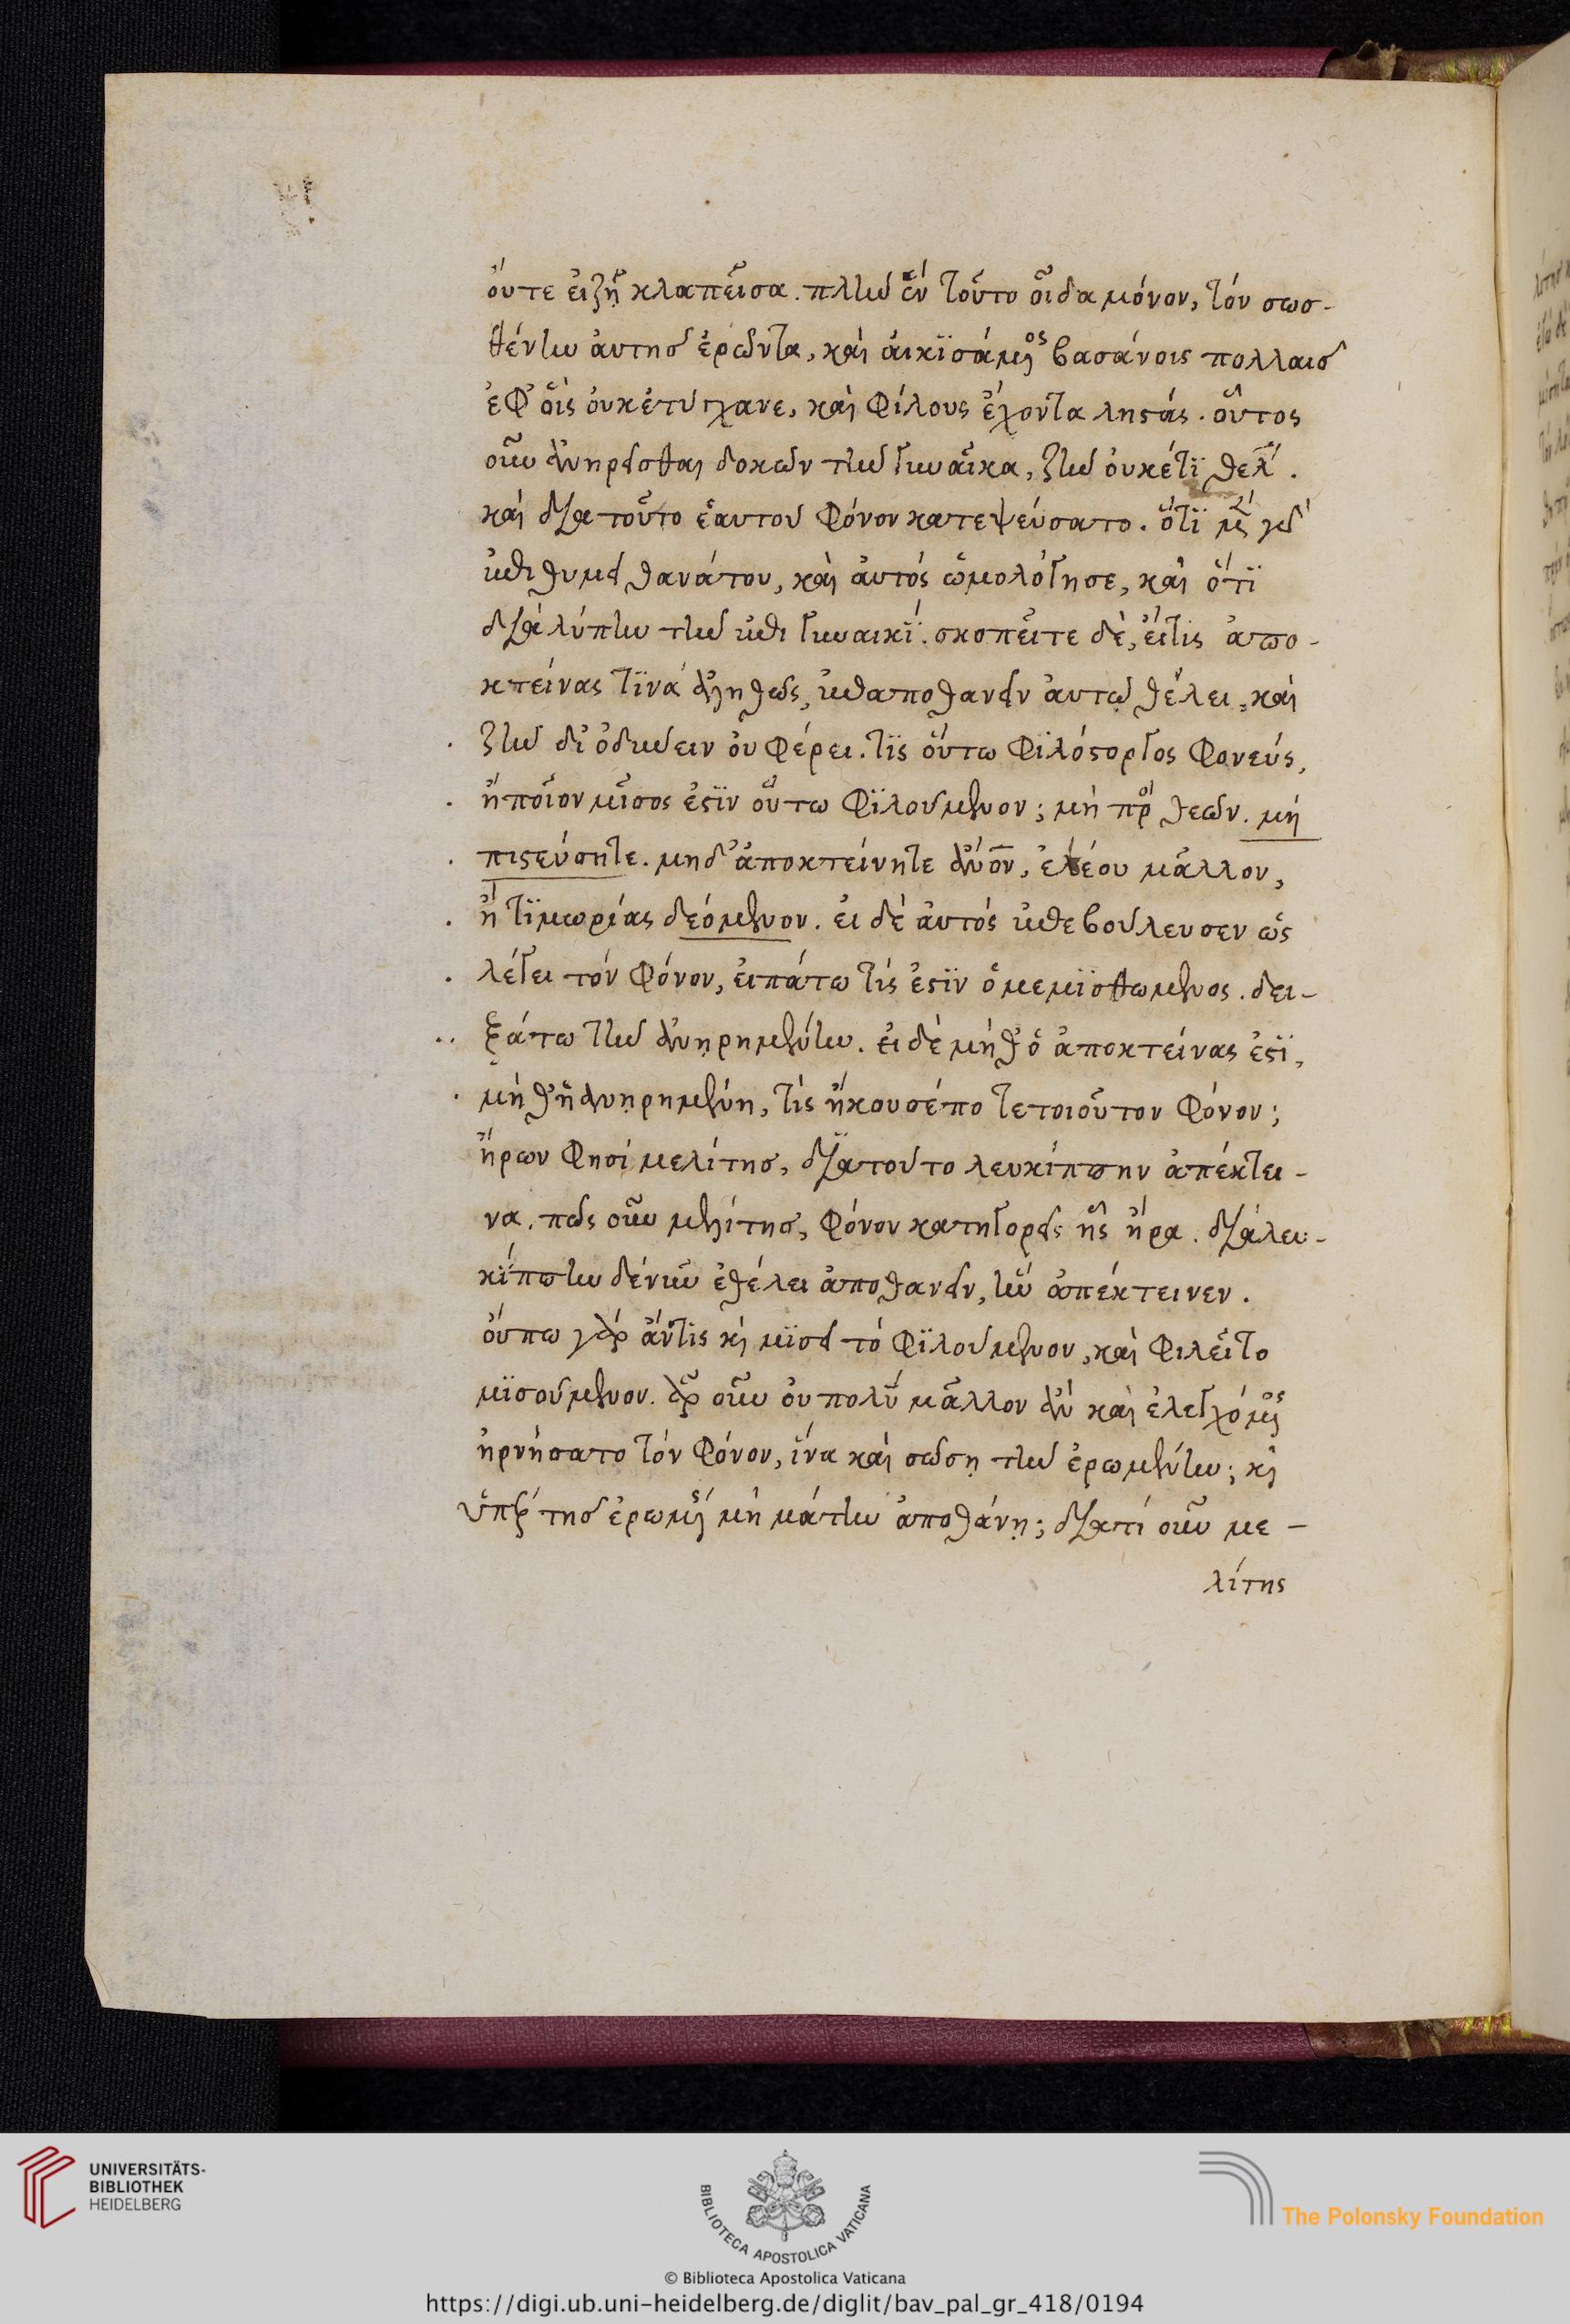 ὄυτε ἐι ζῆ κλαπεῖσα. πλὴν ἕν τοῦτο οἶδα μόνον, τόν σωσ-
θένην ἀυτησ ἐρῶντα, καὶ ἀικισάμενος βασάνοις πολλαισ
ἐφ' οἷς ὀυκ ἐτύγχανε, καὶ φίλους ἔχοντα ληστάς. οὗτος
οὖν ἀνηρῆσθαι δοκῶν τὴν γυναῖκα, ζῆν ὀυκέτι θέλει.
καὶ δια τοῦτο ἑαυτοῦ φόνον κατεψεύσατο. ὅτι μὲν γὰρ
ἐπιθυμεῖ θανάτου, καὶ ἀυτός ὡμολόγησε, καὶ ὅτι
διὰ λύπην τὴν ἐπὶ γυναικί. σκοπεῖτε δὲ, ἔιτις ἀπο-
κτείνας τινά ἀληθῶς, ἐπαποθανεῖν ἀυτῷ θέλει, καὶ
ζῆν δι' ὀδύνην ὀυ φέρει. τίς ὄυτω φιλόστοργος φονεύς,
ἢ ποῖον μῖσος ἐστὶν οὕτω φιλούμενον; μὴ πρὸς θεῶν. μὴ
πιστεύσητε. μηδ' ἀποκτείνητε ἄνθρωπον, ἐλέου μᾶλλον,
ἢ τιμωρίας δεόμενον. ἐι δὲ ἀυτός ἐπεβούλευσεν ὡς
λέγει τόν φόνον, ἐιπάτω τίς ἐστὶν ὁ μεμισθωμένος. δει-
ξάτω τὴν ἀνῃρημένην. ἐι δὲ μήθ' ὁ ἀποκτείνας ἐστὶ,
μήθ' ἡ ἀνῃρημένη, τίς ἤκουσέ ποτε τοιοῦτον φόνον;
ἤρων φησί μελίτησ, δια τοῦτο λευκίππην ἀπέκτει-
να. πῶς οὖν μελίτησ, φόνον κατηγορεῖς ἧς ἤρα. διὰ λευ-
κίππην δὲ νῦν ἐθέλει ἀποθανεῖν, ἣν ἀπέκτεινεν.
ὄυπω γὰρ ἄν τις καὶ μισεῖ τό φιλούμενον, καὶ φιλεῖ το
μισούμενον. ἆρ' οὖν ὀυ πολὺ μᾶλλον ἂν καὶ ἐλεγχόμενος
ἠρνήσατο τόν φόνον, ἵνα καὶ σώσῃ τὴν ἐρωμένην; καὶ
ὑπὲρ τησ ἐρωμένης μὴ μάτην ἀποθάνῃ; διατί οὖν με-
λίτης
UNIVERSITÄTS-
BIBLIOTHEK
HEIDELBERG
BIBLIOTECA APOSTOLICA VATICANA
The Polonsky Foundation
© Biblioteca Apostolica Vaticana
https://digi.ub.uni-heidelberg.de/diglit/bav_pal_gr_418/0194